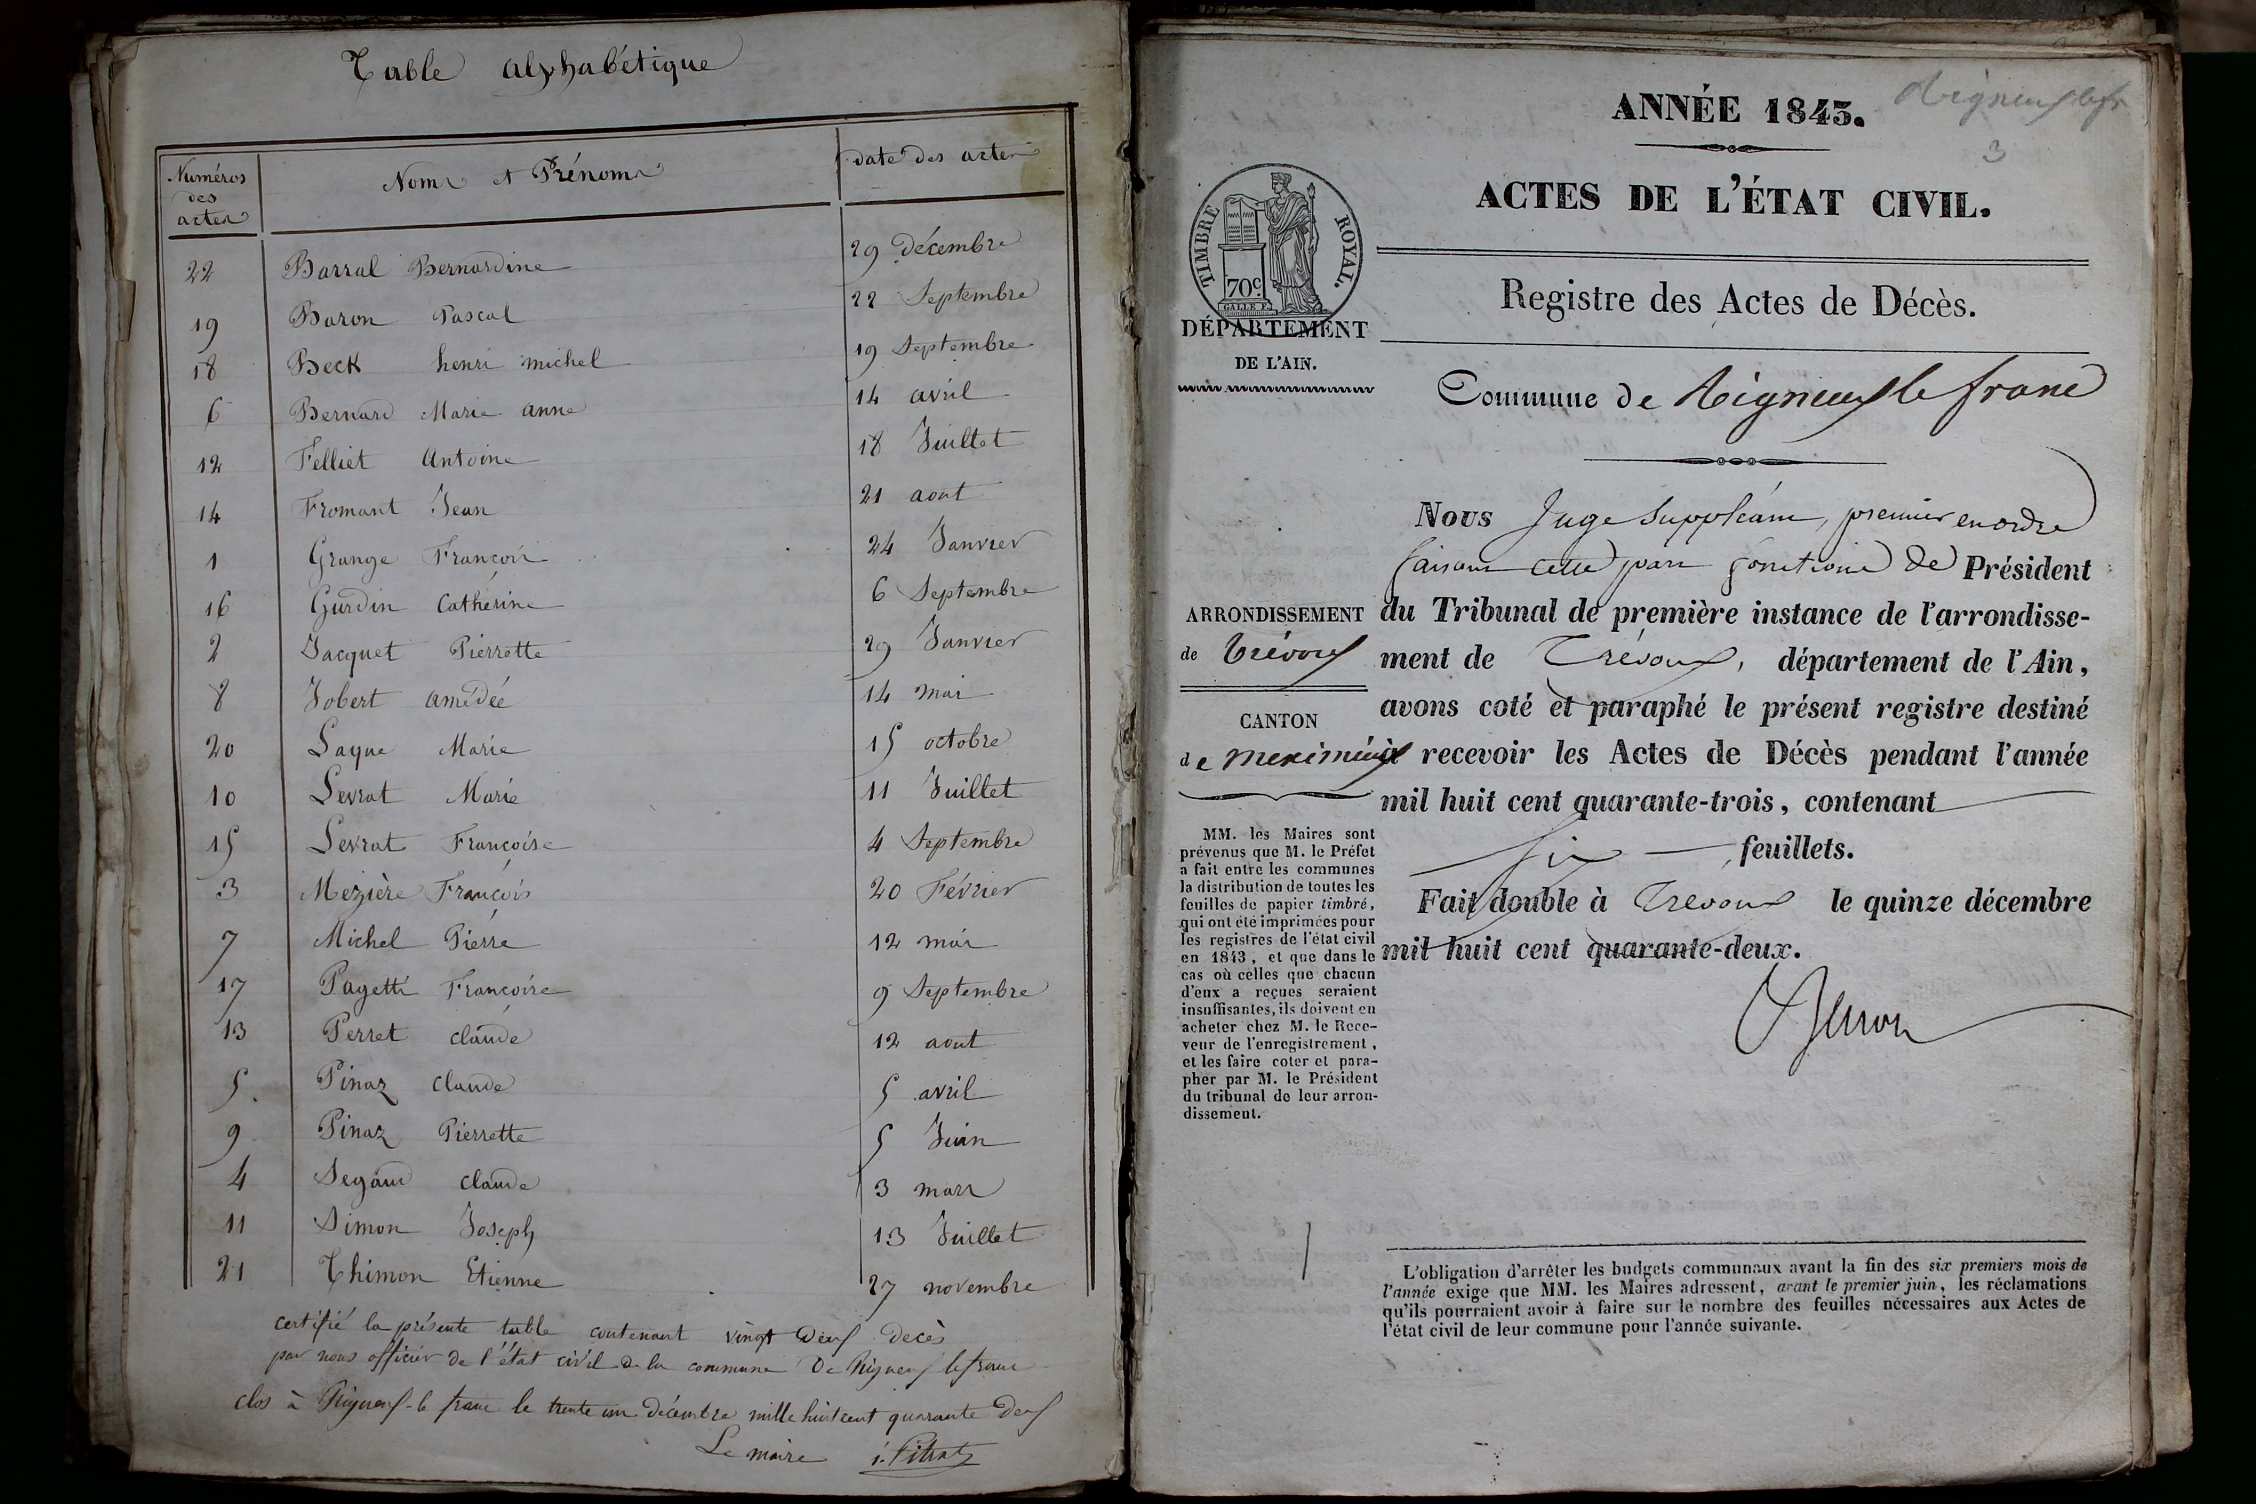 Table alphabétique
Numéros des actes Noms et Prénoms date des actes
22 Barral Bernardine 29 décembre
19 Baron Pascal 22 Septembre
18 Beck henri michel 19 Septembre
6 Bernard Marie anne 14 avril
12 Felliet Antoine 18 Juillet
14 Fromant Jean 21 aout
1 Grange François 24 Janvier
16 Gurdin Cathérine 6 Septembre
2 Jacquet Pierrette 29 Janvier
8 Jobert amédée 14 mai
20 Laque Marie 15 octobre
10 Levrat Marie 11 Juillet
15 Levrat Françoise 4 Septembre
3 Mezière François 20 Février
7 Michel Pierre 12 mai
17 Pagetti Françoise 9 Septembre
13 Perret claude 12 aout
5 Pinaz Claude 5 avril
9 Pinaz Pierrette 5 Juin
4 Segaud claude 3 mars
11 Simon Joseph 13 Juillet
21 Thimon Etienne 27 novembre
certifié la présente table contenant vingt deux décès
par nous officier de l'état civil de la commune De Rigneux le franc
clos à Rigneux-le franc le trente un décembre mille huit cent quarante deux
Le maire
ANNÉE 1843.
3
ACTES DE L'ÉTAT CIVIL.
TIMBRE ROYAL.
70c
GALLE F.
DÉPARTEMENT
DE L'AIN.
Registre des Actes de Décès.
Commune de Rigneux le franc
Nous Juge Suppléant, premier en ordre
faisant cette part fonctions de Président
du Tribunal de première instance de l'arrondisse-
ment de Trévoux, département de l'Ain,
avons coté et paraphé le présent registre destiné
à recevoir les Actes de Décès pendant l'année
mil huit cent quarante-trois, contenant
six feuillets.
Fait double à Trévoux le quinze décembre
mil huit cent quarante-deux.
ARRONDISSEMENT
de Trévoux
CANTON
de meximieux
MM. les Maires sont
prévenus que M. le Préfet
a fait entre les communes
la distribution de toutes les
feuilles de papier timbré,
qui ont été imprimées pour
les registres de l'état civil
en 1843, et que dans le
cas où celles que chacun
d'eux a reçues seraient
insuffisantes, ils doivent en
acheter chez M. le Rece-
veur de l'enregistrement,
et les faire coter et para-
pher par M. le Président
du tribunal de leur arron-
dissement.
L'obligation d'arrêter les budgets communaux avant la fin des six premiers mois de
l'année exige que MM. les Maires adressent, avant le premier juin, les réclamations
qu'ils pourraient avoir à faire sur le nombre des feuilles nécessaires aux Actes de
l'état civil de leur commune pour l'année suivante.